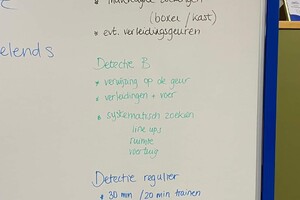 (boxer / kast)
* evt. verleidingsgeuren
elends
Detectie B
* verwijzing op ok geur
* verleidingen + voer
* systematisch zoeken
line ups
ruimte
voertuig
Detectie regulier
* 30 min / 20 min trainen